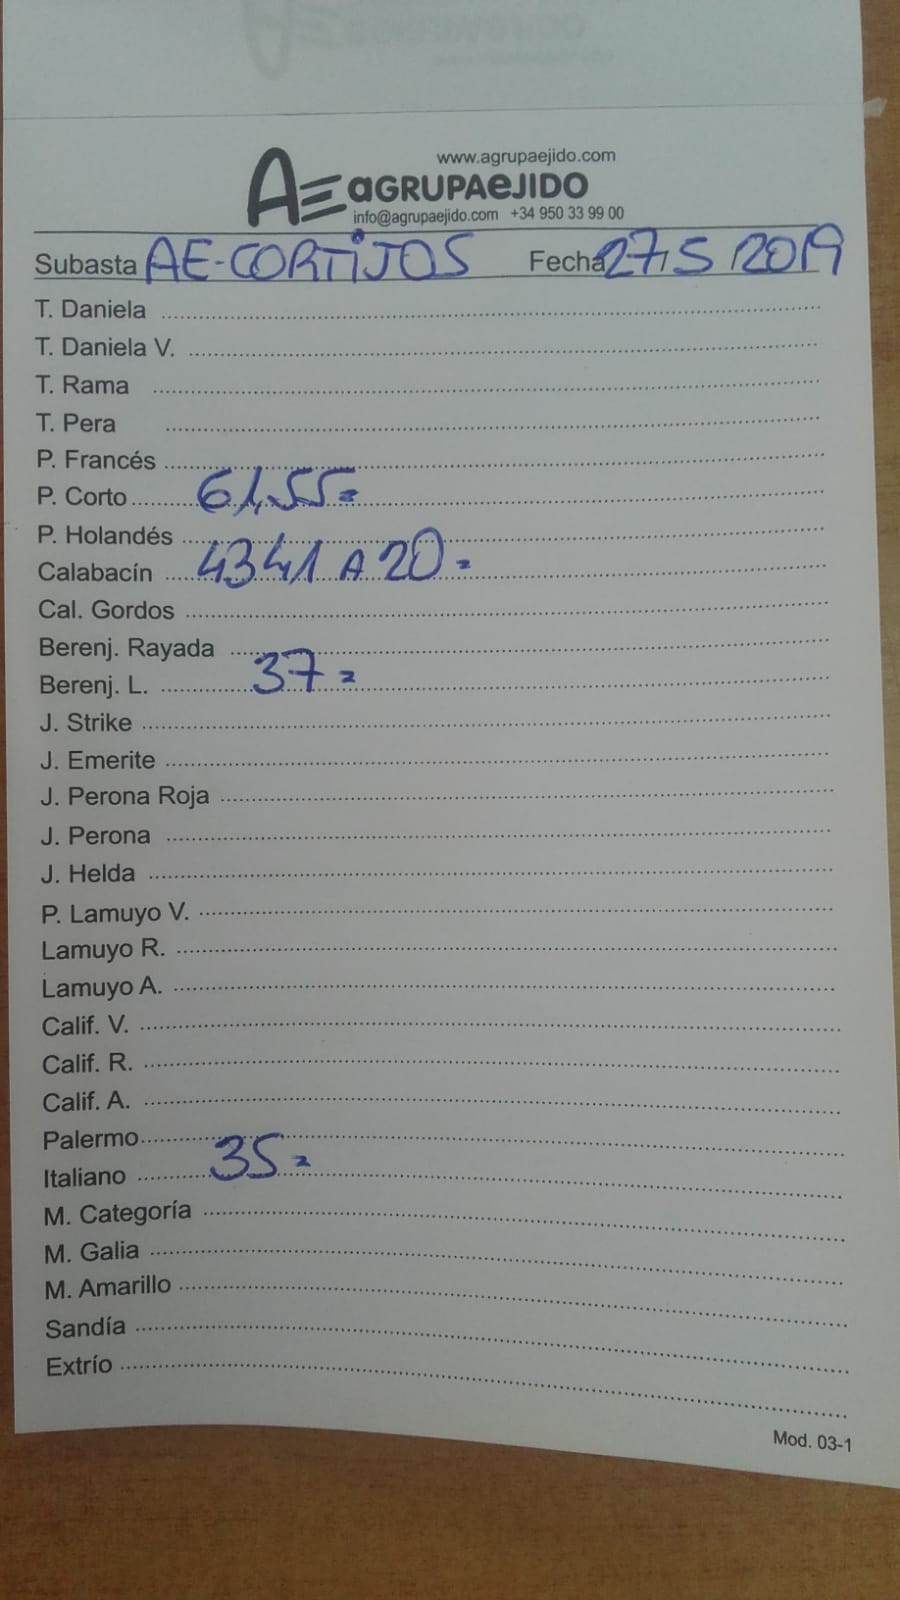 www.agrupaejido.com
AE aGRUPAeJIDO
info@agrupaejido.com +34 950 33 99 00
Subasta AE-CORTIJOS Fecha 27/5/2019
T. Daniela
T. Daniela V.
T. Rama
T. Pera
P. Francés
P. Corto 61,55=
P. Holandés
Calabacín 43 41 A 20=
Cal. Gordos
Berenj. Rayada
Berenj. L. 37=
J. Strike
J. Emerite
J. Perona Roja
J. Perona
J. Helda
P. Lamuyo V.
Lamuyo R.
Lamuyo A.
Calif. V.
Calif. R.
Calif. A.
Palermo
Italiano 35=
M. Categoría
M. Galia
M. Amarillo
Sandía
Extrío
Mod. 03-1